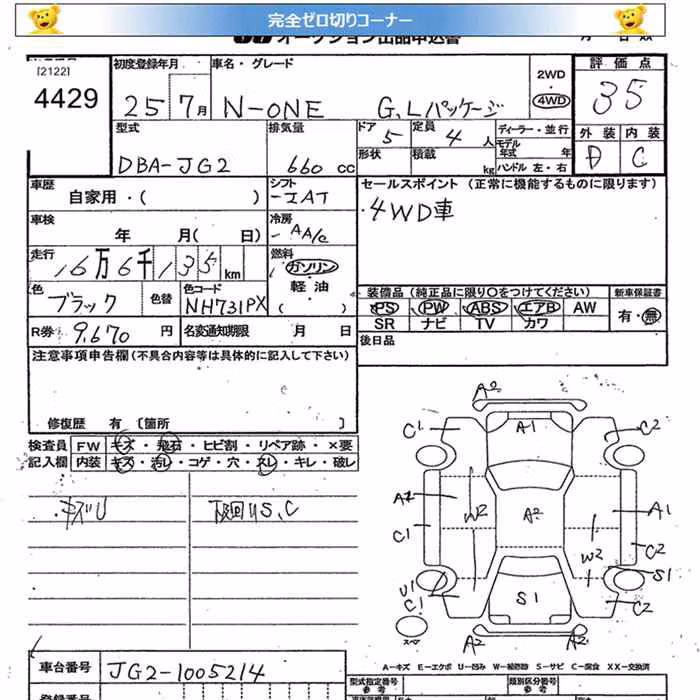 完全ゼロ切りコーナー
オークション出品申込書
[2122]
4429
初度登録年月
25 7月
車名・グレード
N-ONE G,Lパッケージ
2WD
4WD
評価点
35
外装 内装
D C
型式
DBA-JG2
排気量
660 CC
ドア 5
定員 4 人
形状
積載 kg
ディーラー・並行
モデル年式 年
ハンドル 左・右
車歴
自家用・( )
シフト
IAT
セールスポイント (正常に機能するものに限ります)
・4WD車
車検
年 月( 日)
冷房
AA/c
走行
16万6千135km
燃料
ガソリン
軽油
( )
色
ブラック
色替
色コード
NH731PX
装備品(純正品に限り○をつけてください)
PS PW ABS エアB AW
SR ナビ TV カワ
新車保証書
有・無
R券 9,670 円
名変通知期限 月 日
後日品
注意事項申告欄(不具合内容等は具体的に記入して下さい)
修復歴 有 [箇所 ]
検査員
記入欄
FW キズ・飛石・ヒビ割・リペア跡・×要
内装 キズ・汚れ・コゲ・穴・スレ・キレ・破レ
・キズU
下回りS、C
A2
C1 A1 C2
A2 W2 A2 A1
C1 C2
W2
U1 S1
C1 S1 C2
スペア
A2 A2
A-キズ E-エクボ U-凹み W-補修跡 S-サビ C-腐食 XX-交換済
車台番号
JG2-1005214
登録番号
型式指定番号
参考
類別区分番号
参考